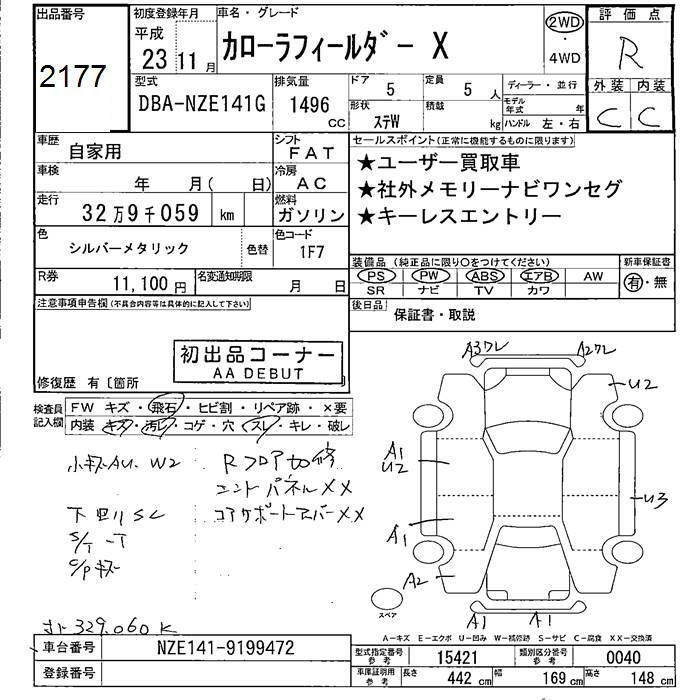 出品番号
2177
初度登録年月
平成
23年11月
車名・グレード
カローラフィールダー X
2WD
・
4WD
評価点
R
外装 内装
C C
型式
DBA-NZE141G
排気量
1496
CC
ドア
5
定員
5
人
形状
ステW
積載
kg
ディーラー・並行
モデル年式
年
ハンドル 左・右
車歴
自家用
シフト
FAT
車検
年 月( 日)
冷房
AC
走行
32万9千059 km
燃料
ガソリン
色
シルバーメタリック
色替
色コード
1F7
R券
11,100円
名変通知期限
月 日
セールスポイント(正常に機能するものに限ります)
★ユーザー買取車
★社外メモリーナビワンセグ
★キーレスエントリー
装備品(純正品に限り○をつけてください)
PS PW ABS エアB AW
SR ナビ TV カワ
新車保証書
有・無
後日品
保証書・取説
注意事項申告欄(不具合内容等は具体的に記入して下さい)
初出品コーナー
AA DEBUT
修復歴 有〔箇所 〕
検査員記入欄
FW キズ・飛石・ヒビ割・リペア跡・×要
内装 キズ・汚レ・コゲ・穴・スレ・キレ・破レ
小キズAU、W2
Rフロア加修
エンドパネルXX
下廻りSC
コアサポートアッパーXX
S/T -T
C/Pキズ
A3ワレ A2ワレ
U2
A1
U2
U3
A1
A2
スペア
A1 A1
A-キズ E-エクボ U-凹み W-補修跡 S-サビ C-腐食 XX-交換済
329,060K
車台番号
NZE141-9199472
登録番号
型式指定番号
参考
15421
類別区分番号
参考
0040
車庫証明用
参考
長さ
442 cm
幅
169 cm
高さ
148 cm